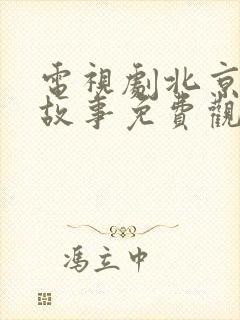 電視劇北京
故事免費觀
馮立中